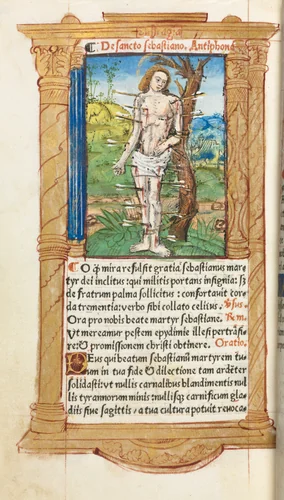 ¶ De sancto sebastiano. Antiphona
¶ O q̃ mira refulsit gratia sebastianus mar⸗
tyr dei inclitus: qui militis portans insignia: sʒ
de fratrum palma sollicitus: confortauit cor⸗
da trementia: verbo sibi collato celitus.
Ora pro nobis beate martyr sebastiane.
Ut mereamur pestem epydimie illesi pertrãsi⸗
re: et promissionem christi obtinere. Oratio.
Deus qui beatum sebastianũ martyrem tu⸗
um in tua fide et dilectione tam ardẽter
solidasti: vt nullis carnalibus blandimentis nul
lis tyrannorum minis: nullisqʒ carnificum gla⸗
diis siue sagittis, a tua cultura potuit reuoca⸗